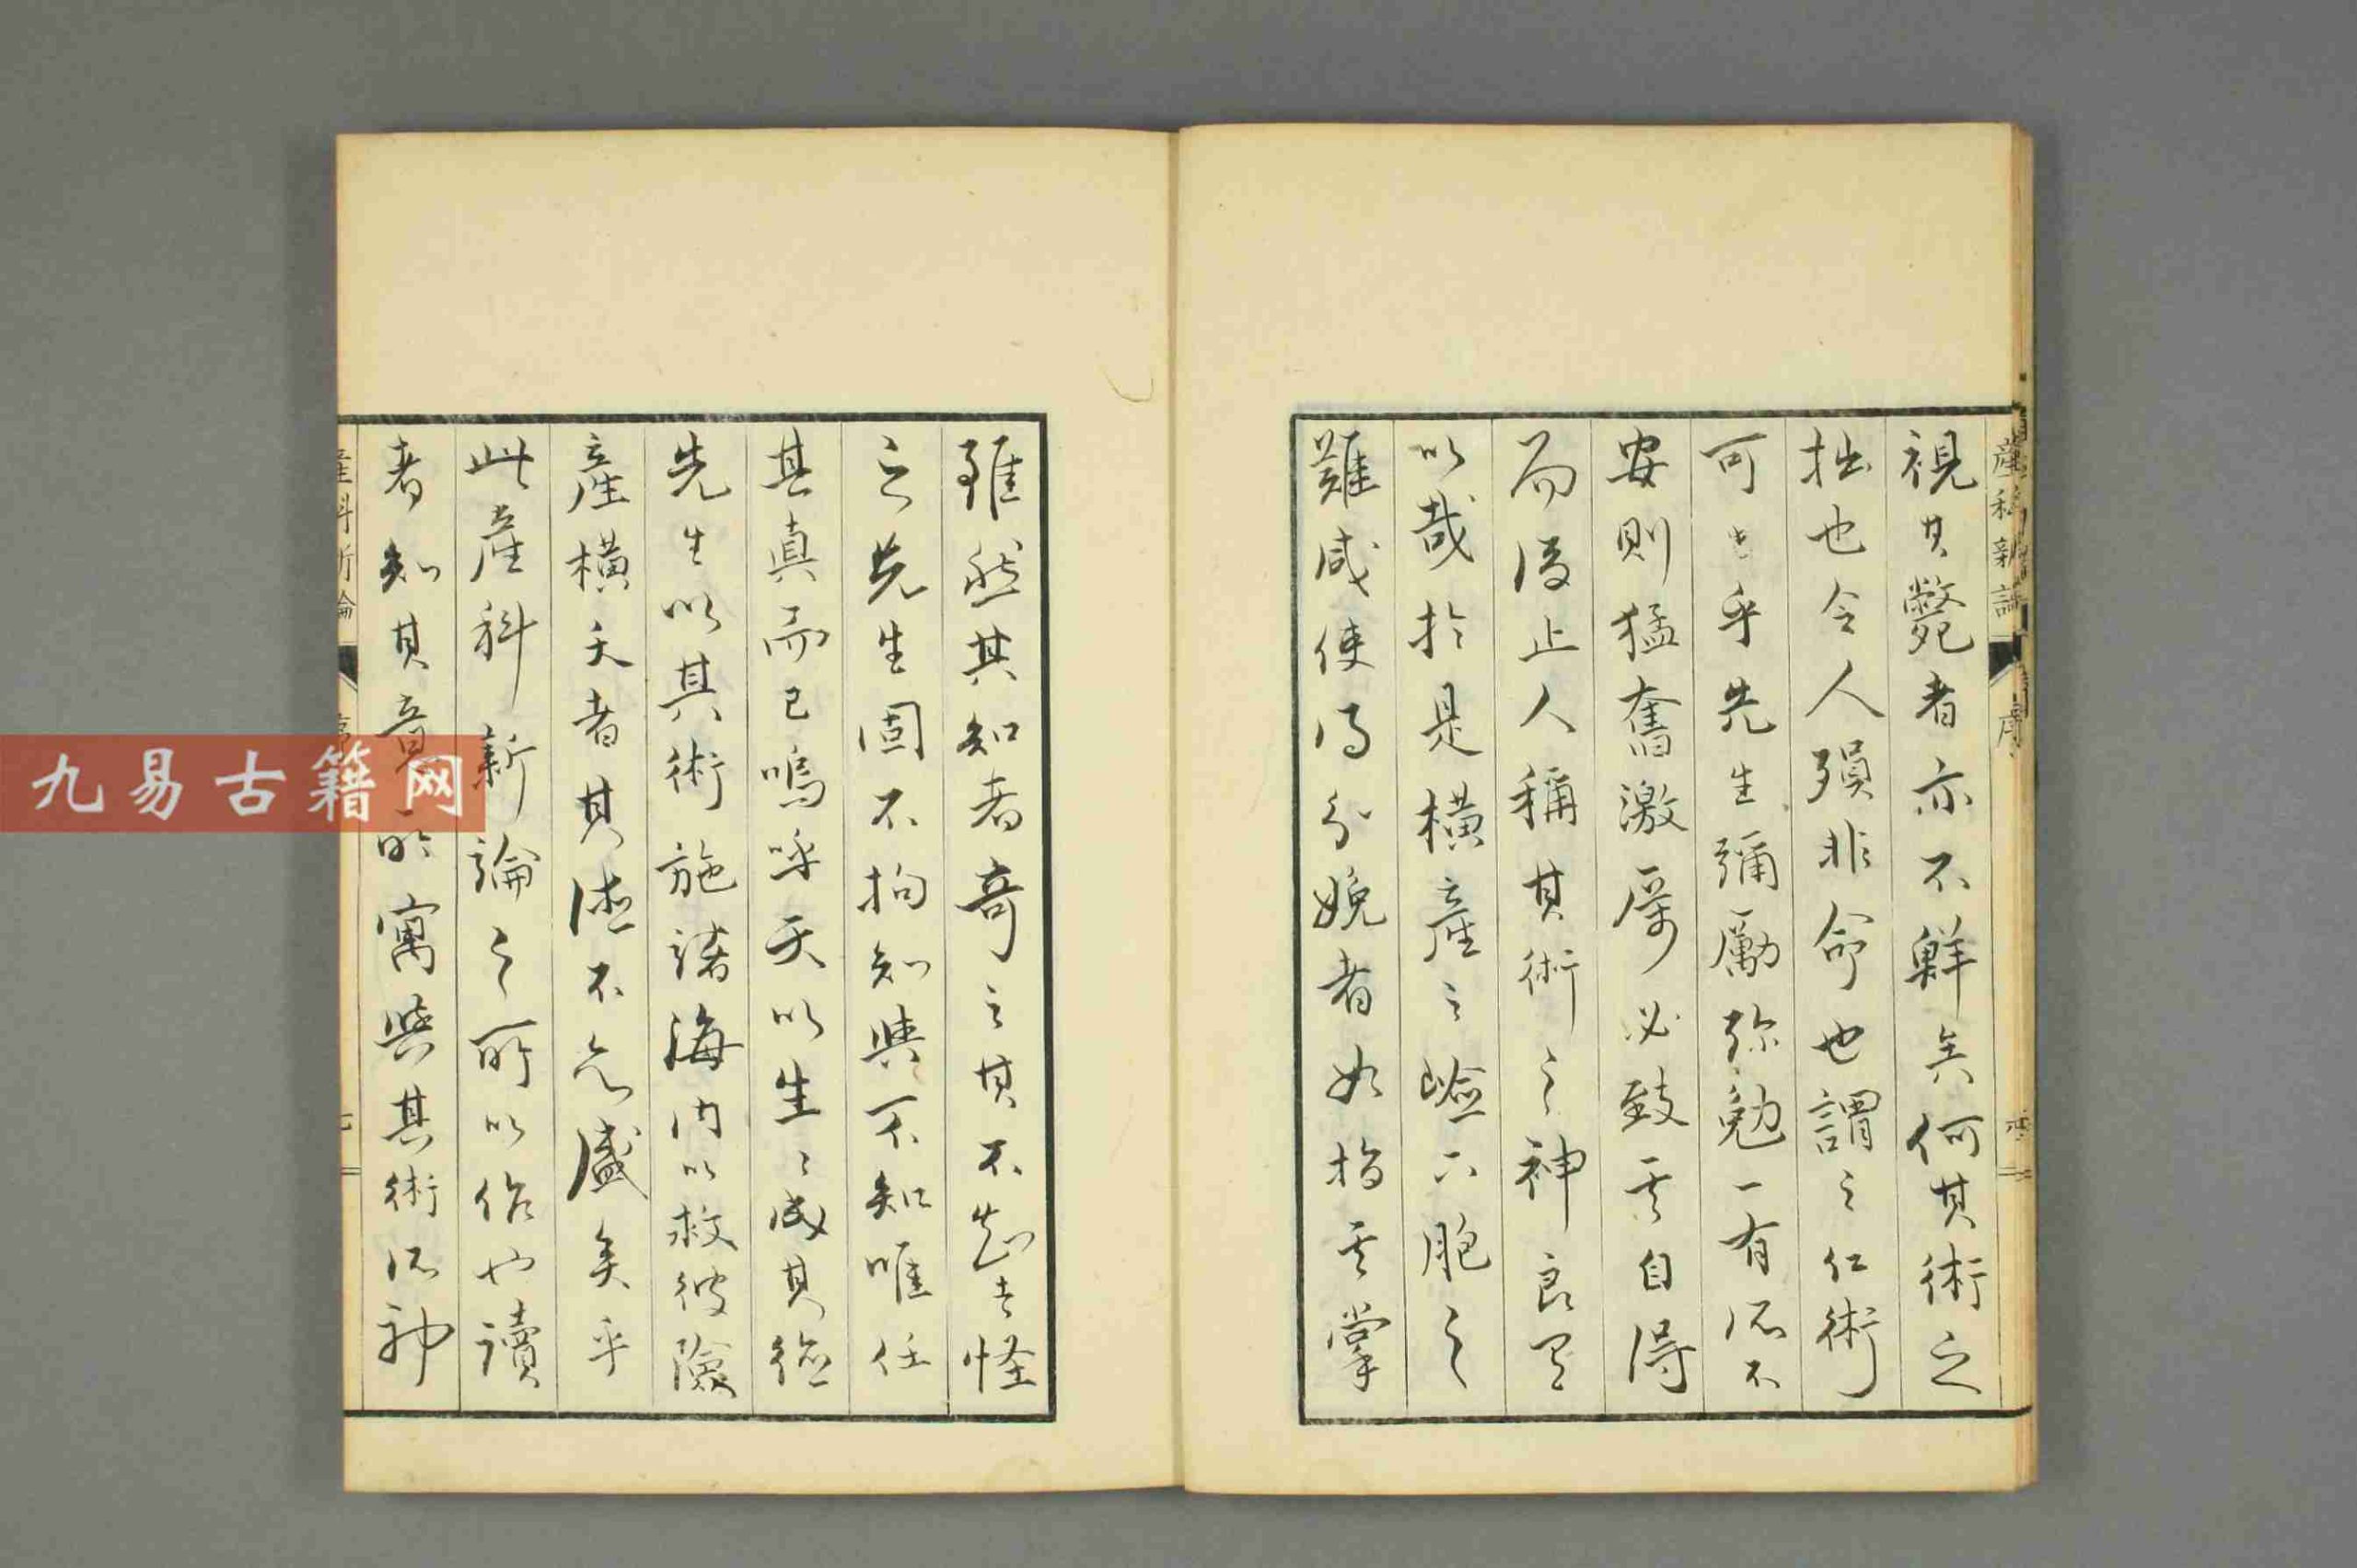 視其斃者亦不鮮矣何其術之
拙也令人殞非命也謂之仁術
可乎先生彌勵弥勉一有所不
安則猛奮激厲必致其自得
而後止人稱其術之神良有
以哉於是橫產之嶮六胞之
難咸使得分娩者如指其掌
雖然其知者奇之其不知者怪
之先生固不拘知與不知唯任
其真而已嗚呼天以生々成其德
先生以其術施諸海內以救彼險
產橫夭者其德不亦盛矣乎
此產科新論之所以作也讀
者知其意所寓與其術所神
產科新論
序
九易古籍网